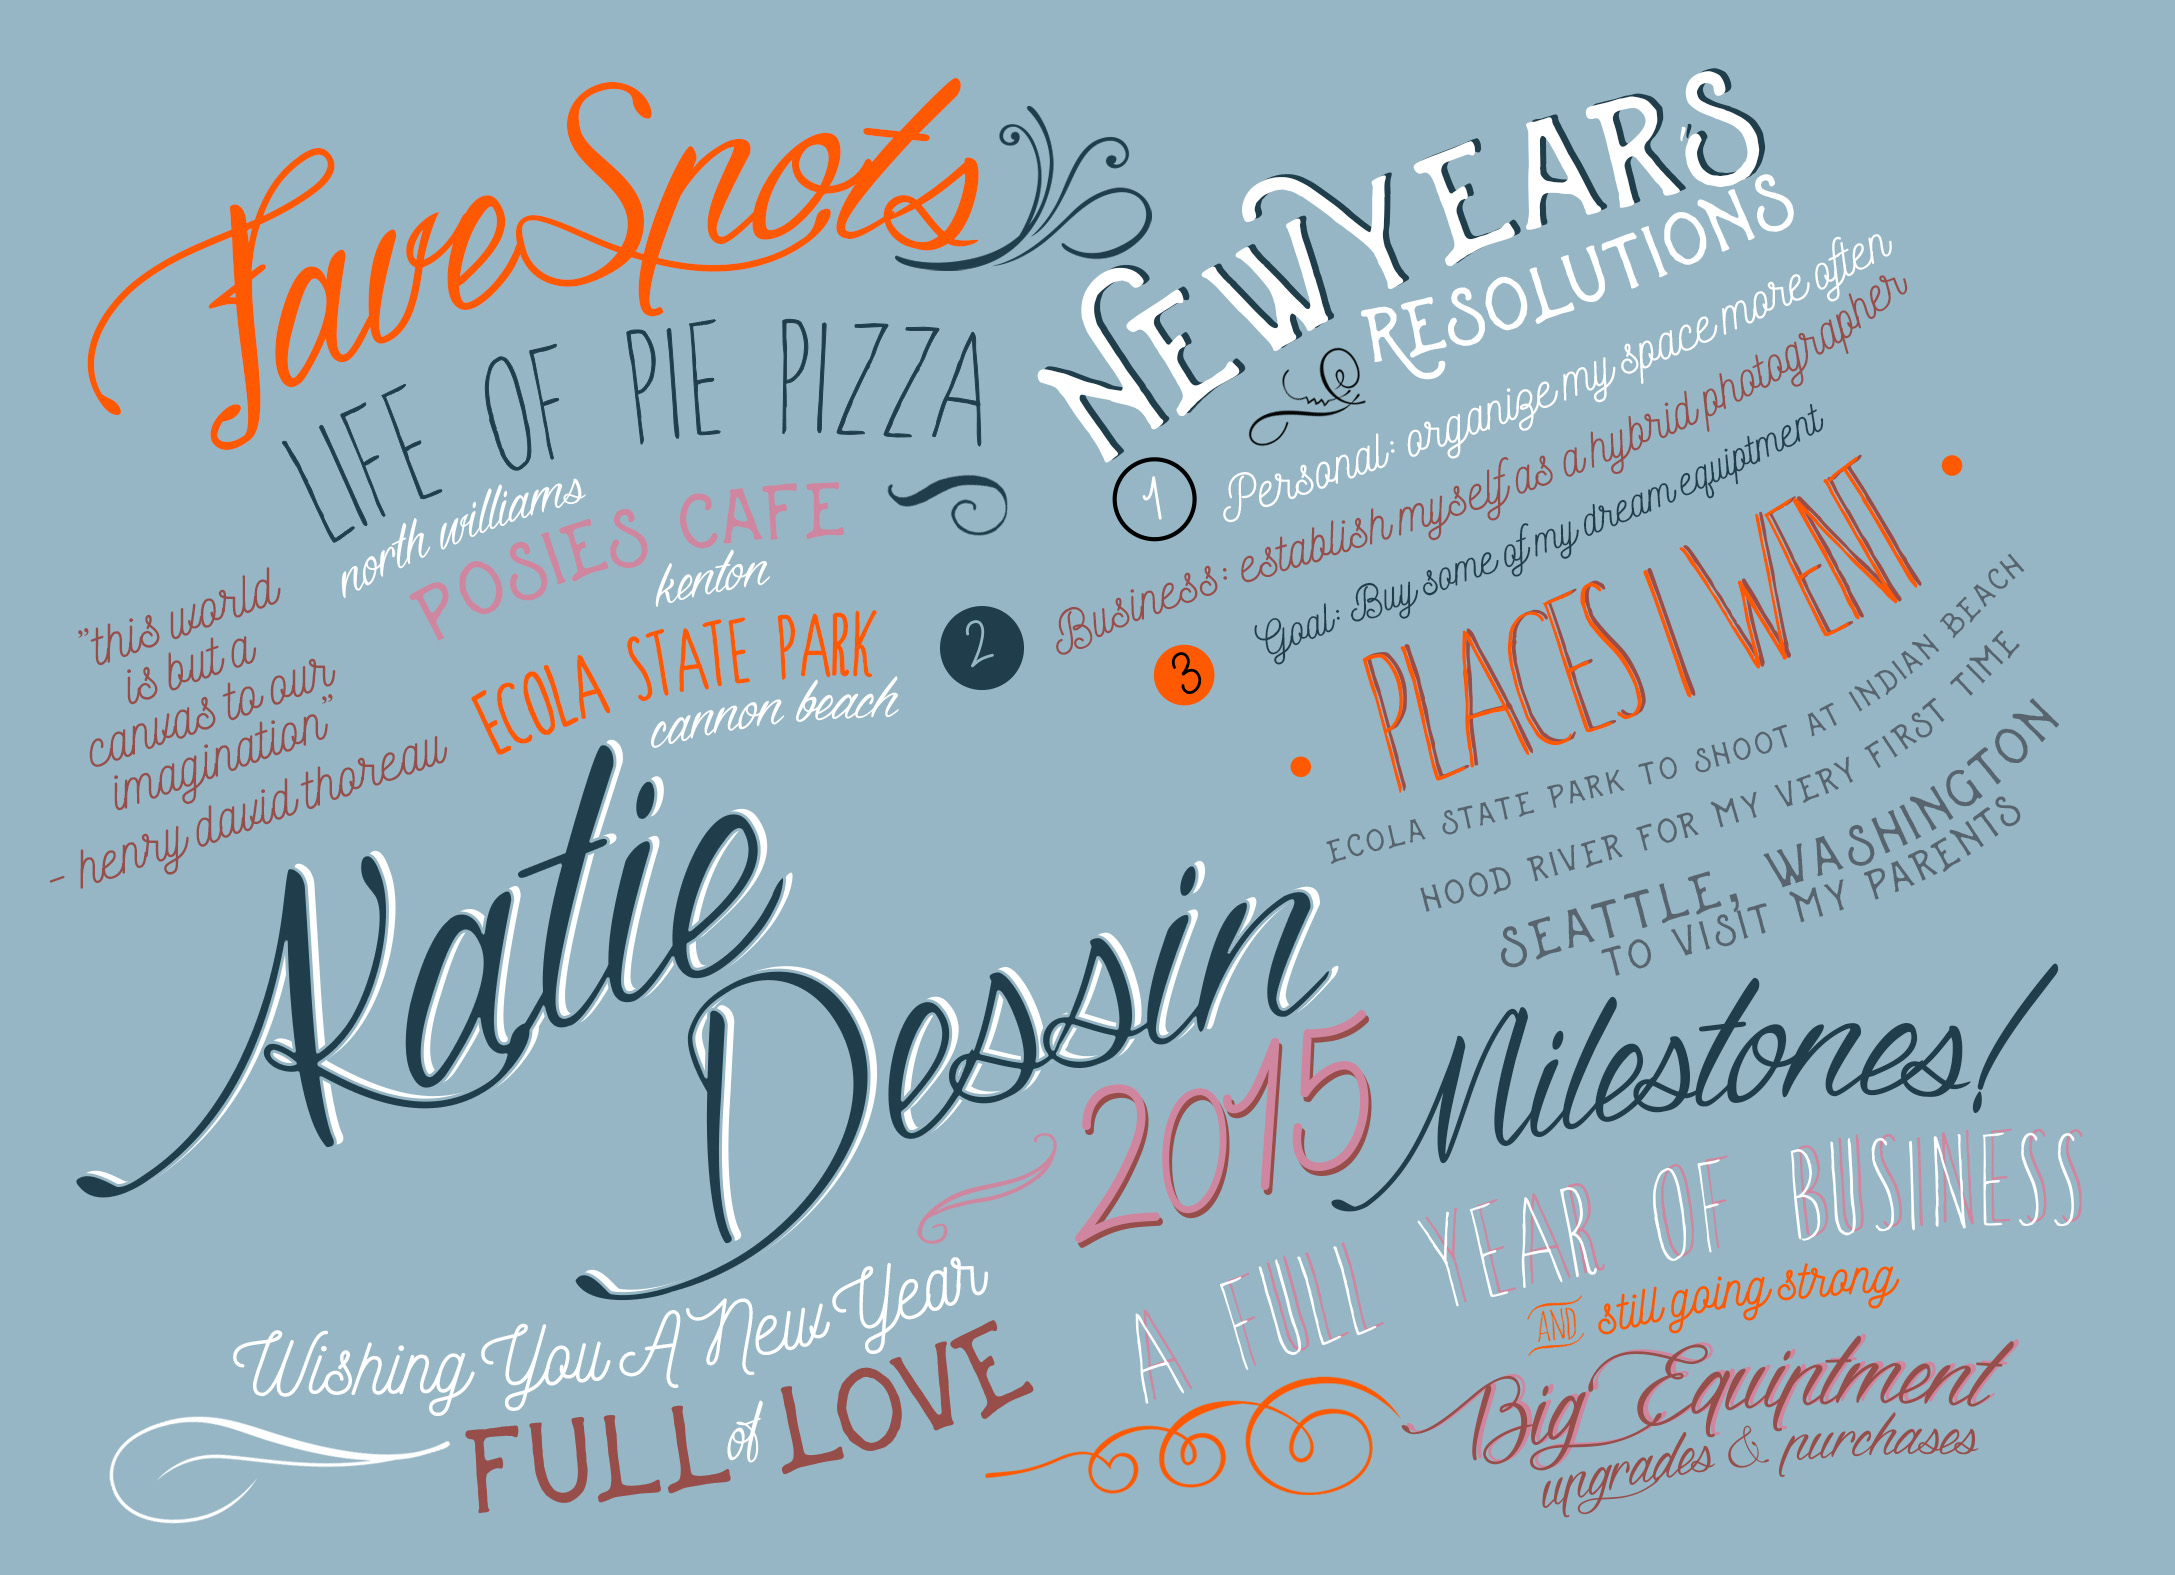 Fave Spots
LIFE OF PIE PIZZA
north williams
POSIES CAFE
kenton
ECOLA STATE PARK
cannon beach
"this world
is but a
canvas to our
imagination"
- henry david thoreau
NEW YEAR'S
RESOLUTIONS
1 Personal: organize my space more often
2 Business: establish myself as a hybrid photographer
3 Goal: Buy some of my dream equiptment
PLACES I WENT
ECOLA STATE PARK TO SHOOT AT INDIAN BEACH
HOOD RIVER FOR MY VERY FIRST TIME
SEATTLE, WASHINGTON
TO VISIT MY PARENTS
Katie
Dessin
2015
Milestones!
A FULL YEAR OF BUSINESS
AND still going strong
Big Equiptment
upgrades & purchases
Wishing You A New Year
FULL of LOVE